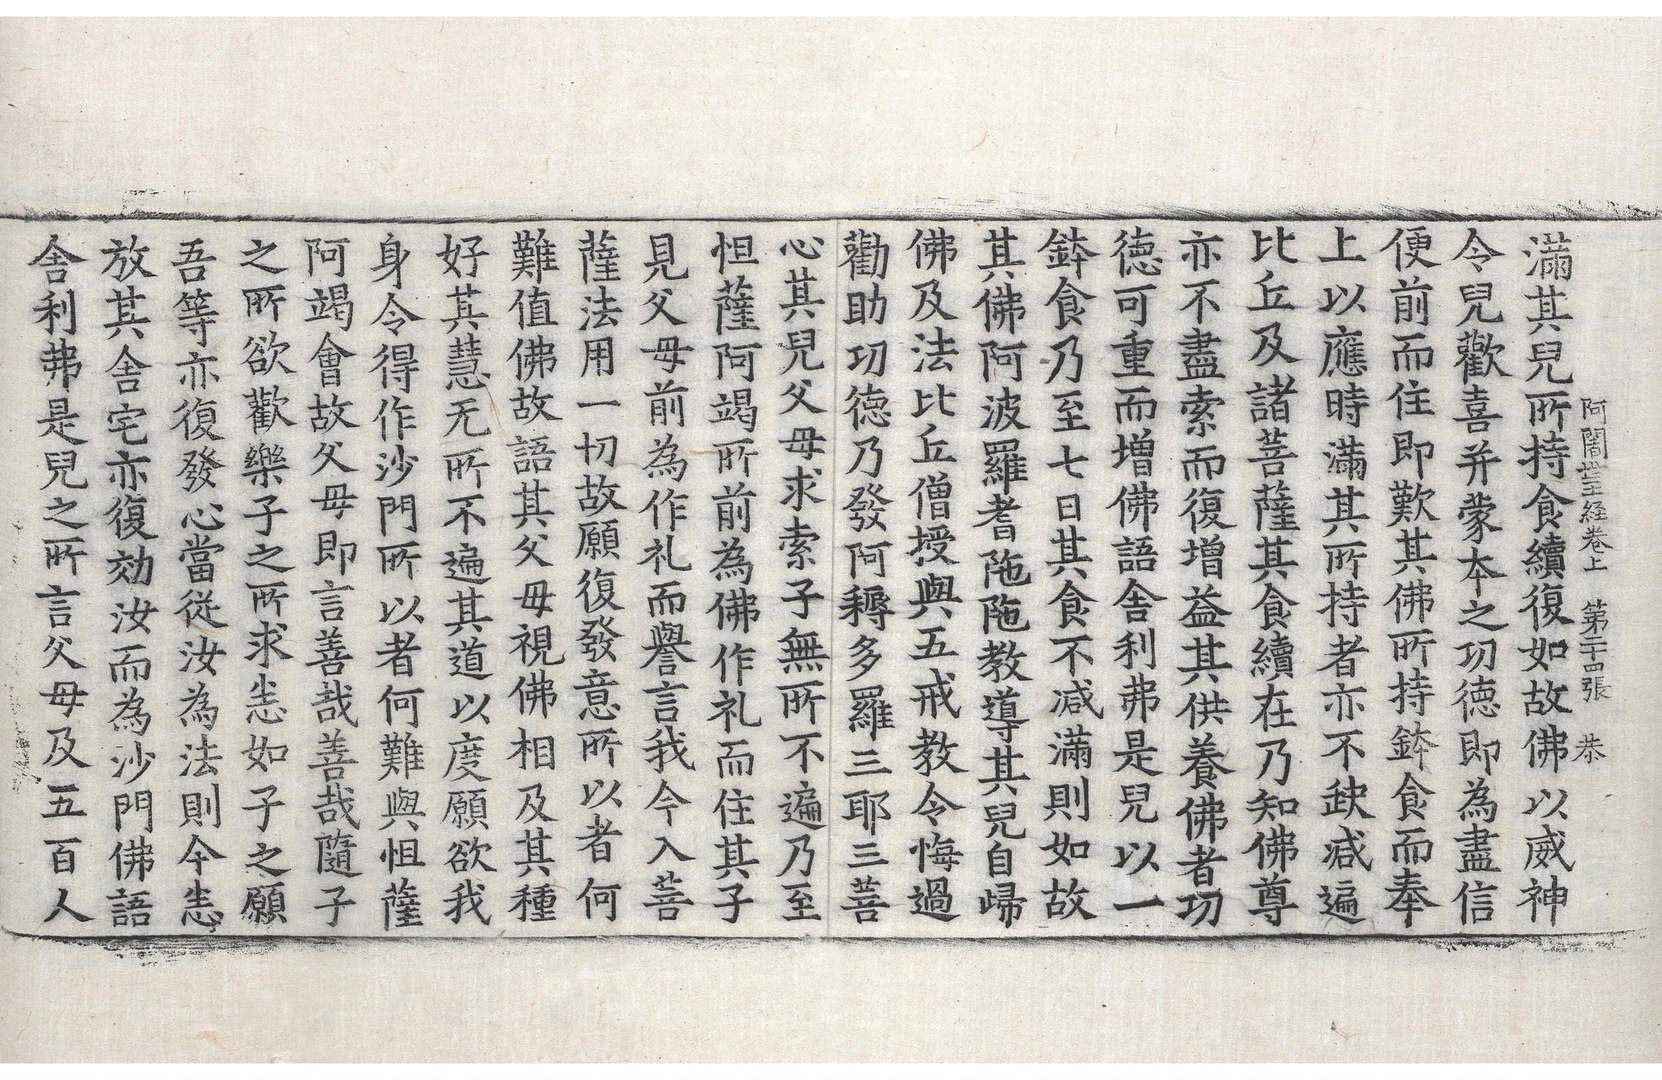 阿闍世王経卷上　第二十四張　恭
滿其兒所持食續復如故佛以威神
令兒歡喜并蒙本之功德即為盡信
便前而住即歎其佛所持鉢食而奉
上以應時滿其所持者亦不缺減遍
比丘及諸菩薩其食續在乃知佛尊
亦不盡索而復增益其供養佛者功
德可重而增佛語舍利弗是兒以一
鉢食乃至七日其食不減滿則如故
其佛阿波羅耆陁陁教導其兒自歸
佛及法比丘僧授與五戒教令悔過
勸助功德乃發阿耨多羅三耶三菩
心其兒父母求索子無所不遍乃至
怛薩阿竭所前為佛作礼而住其子
見父母前為作礼而譽言我今入菩
薩法用一切故願復發意所以者何
難值佛故語其父母視佛相及其種
好其慧无所不遍其道以度願欲我
身令得作沙門所以者何難與怛薩
阿竭會故父母即言善哉善哉隨子
之所欲歡樂子之所求恣如子之願
吾等亦復發心當從汝為法則今恣
放其舍宅亦復効汝而為沙門佛語
舍利弗是兒之所言父母及五百人